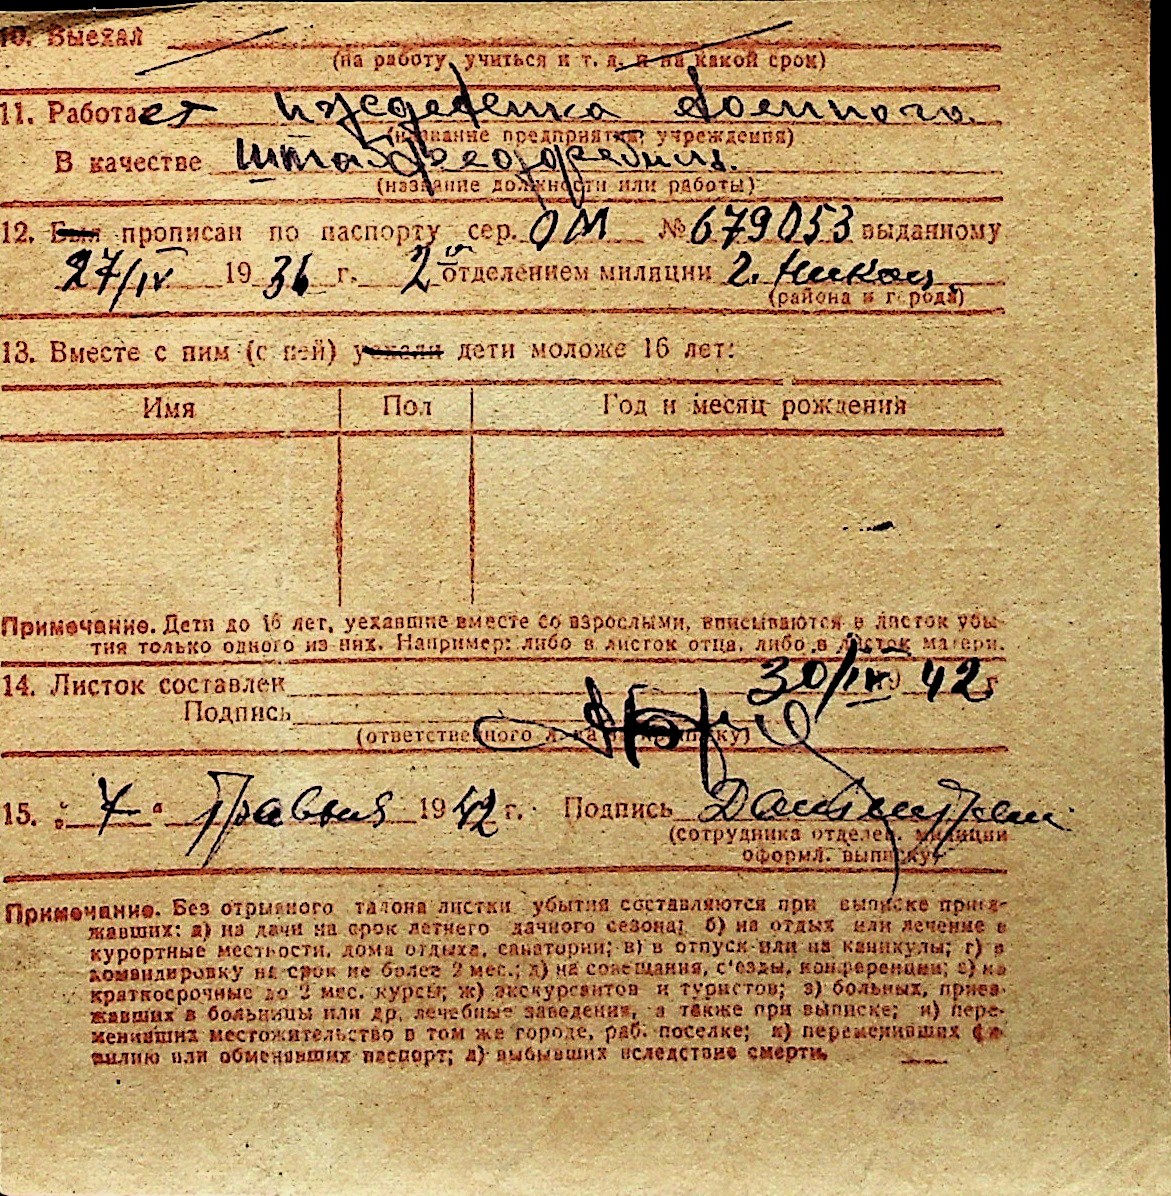 10. Выехал
(на работу, учиться и т. д. и на какой срок)
11. Работает военного
(название предприятия, учреждения)
В качестве
(название должности или работы)
12. Был прописан по паспорту сер. ОМ № 679053 выданному
27/IV 1936 г. 2 отделением милиции г. Никол.
(района и города)
13. Вместе с ним (с ней) уехали дети моложе 16 лет:
Имя Пол Год и месяц рождения
Примечание. Дети до 16 лет, уехавшие вместе со взрослыми, вписываются в листок убы-
тия только одного из них. Например: либо в листок отца, либо в листок матери.
14. Листок составлен 30/IV 1942 г
Подпись
(ответственного за выписку)
15. „ 7 “ Травня 1942 г. Подпись
(сотрудника отделен. милиции
оформл. выписку)
Примечание. Без отрывного талона листки убытия составляются при выписке приез-
жавших: а) на дачи на срок летнего дачного сезона; б) на отдых или лечение в
курортные местности, дома отдыха, санатории; в) в отпуск или на каникулы; г) в
командировку на срок не более 2 мес.; д) на совещания, с'езды, конференции; е) на
краткосрочные до 2 мес. курсы; ж) экскурсантов и туристов; з) больных, приез-
жавших в больницы или др. лечебные заведения, а также при выписке; и) пере-
менивших местожительство в том же городе, раб. поселке; к) переменивших фа-
милию или обменявших паспорт; л) выбывших вследствие смерти.